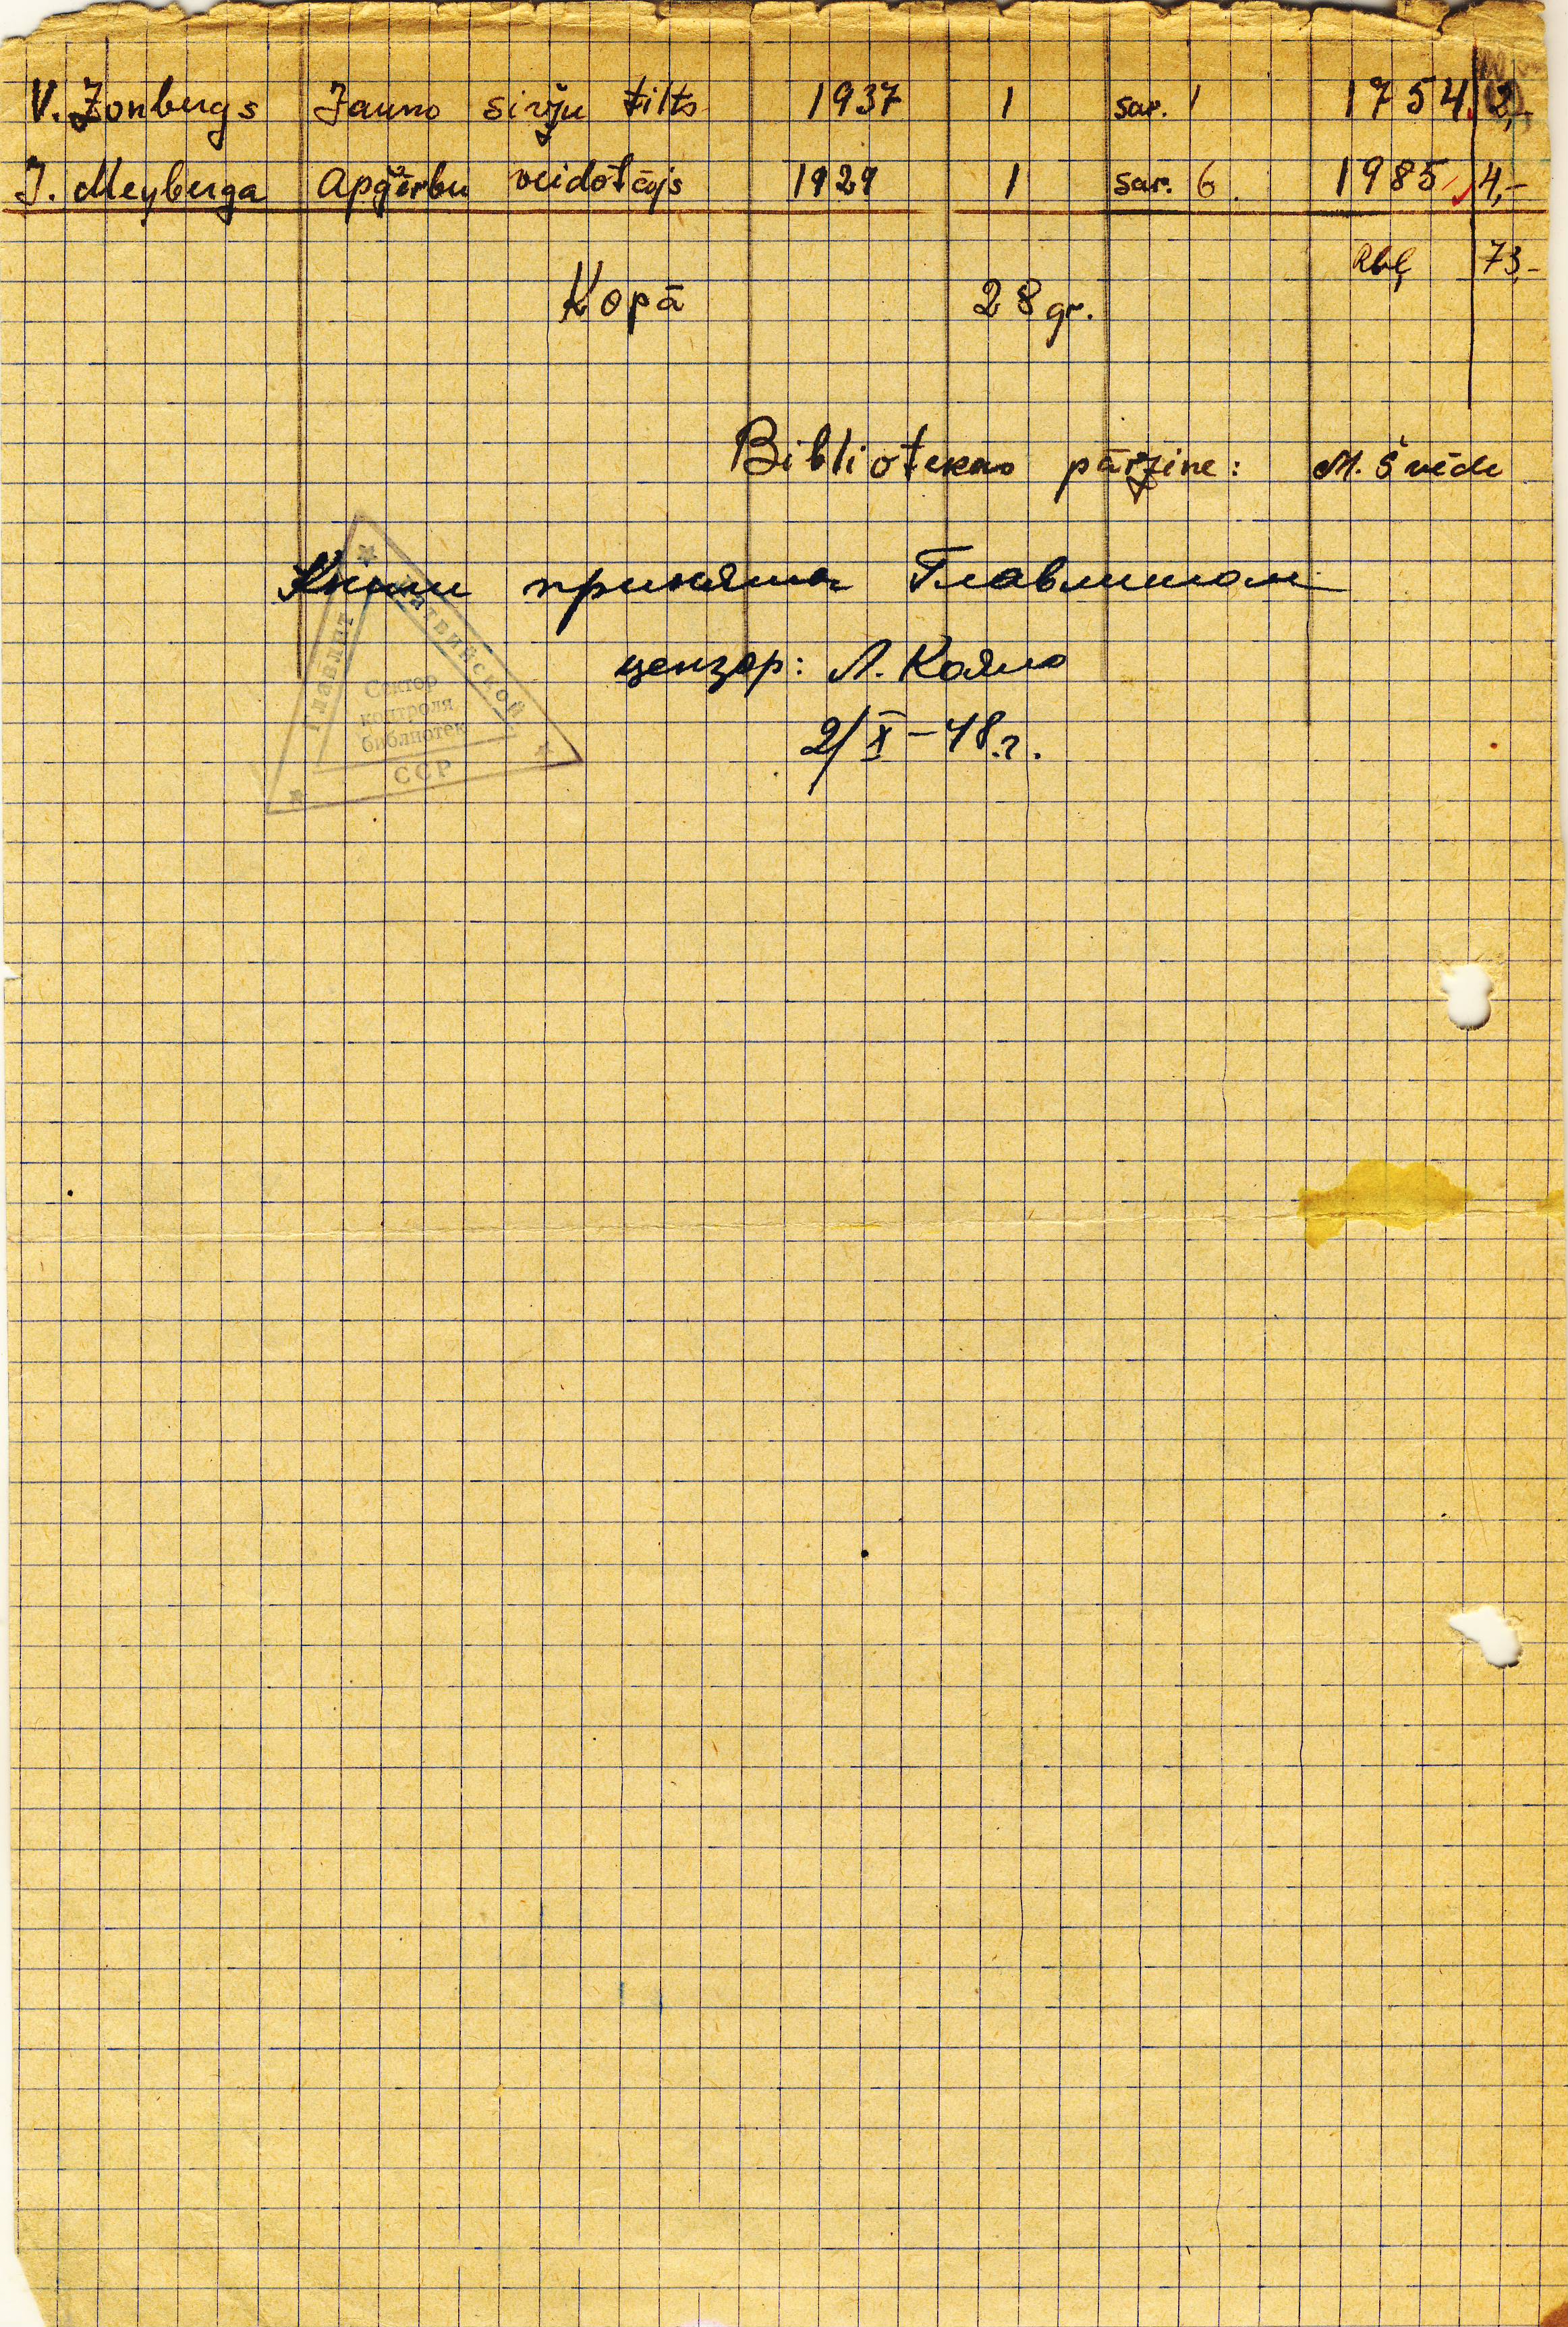 V. Zonbergs Jauno siržu tilts 1937 1 sar. 1 1754 2,-
J. Meyberga Apģērbu veidotājs 1929 1 sar. 6. 1985 4,-
Rbļ 73,-
Kopā 28 gr.
Bibliotekas pārzine: M. Švēde
Книги приняты Главлитом
цензор: Л.
2/X-48.г.
Главлит
Латвийской
ССР
Сектор
контроля
библиотек